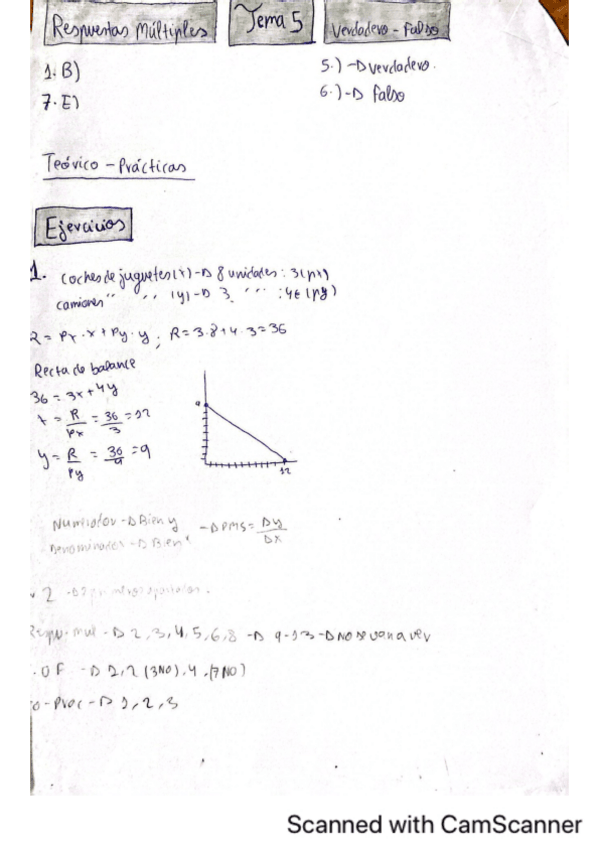 Respuestas Múltiples
Tema 5
Verdadero - Falso
1. B)
7. E)
5.) → Verdadero.
6.) → Falso
Teórico - Prácticas
Ejercicios
1. Coches de juguetes (x) → 8 unidades: 3 (px)
camiones " " (y) → 3 " : 4€ (py)
R = Px · x + Py · y ; R = 3·8+4·3=36
Recta de balance
36 = 3x + 4y
x = R/Px = 36/3 = 12
y = R/Py = 36/4 = 9
9
12
Numerador → Bien y
Denominador → Bien
→ RMS = Δy/Δx
2
mul → 2, 3, 4, 5, 6, 8 → 9-13 → No se van a ver
O F → 1, 2 (3NO), 4, (7NO)
→ 1, 2, 3
Scanned with CamScanner